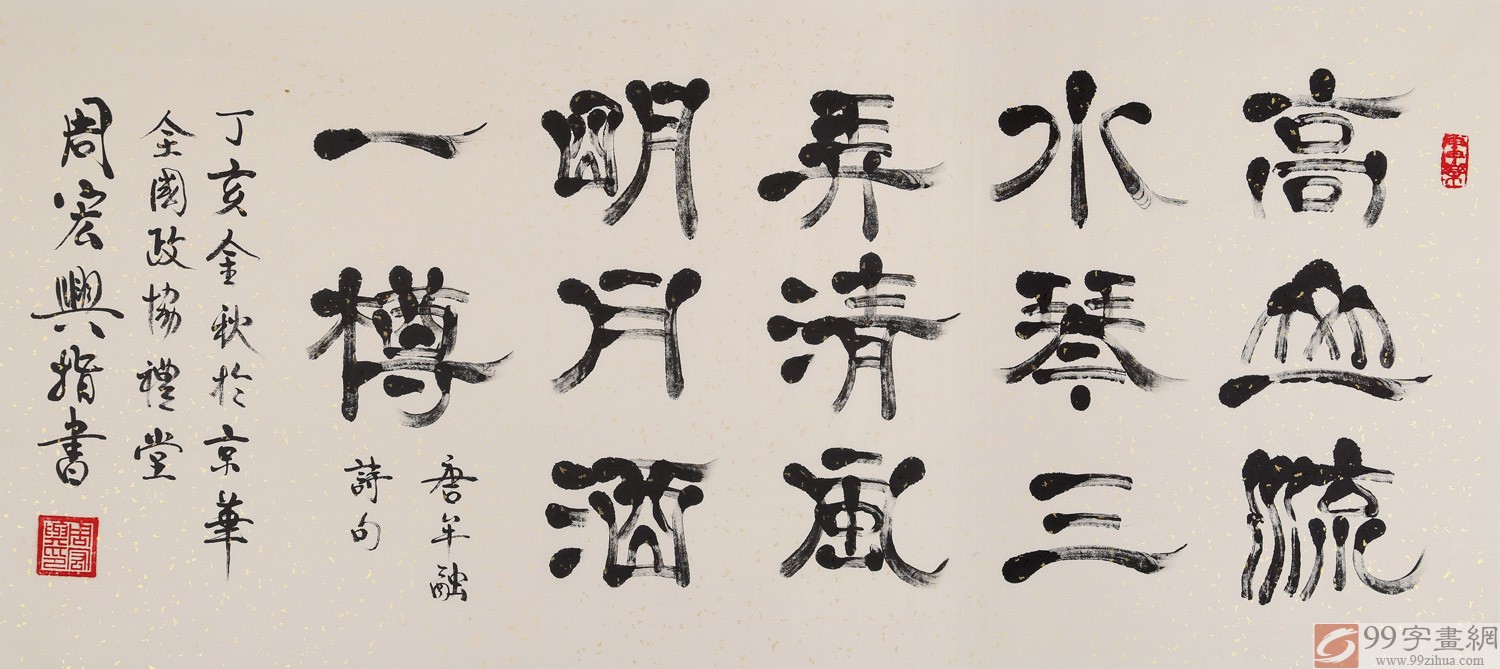 高山流
水琴三
弄清風
明月酒
一樽
唐牟融
詩句
丁亥金秋於京華
全國政協禮堂
周宏興指書
周宏興印
99字畫網
www.99zihua.com